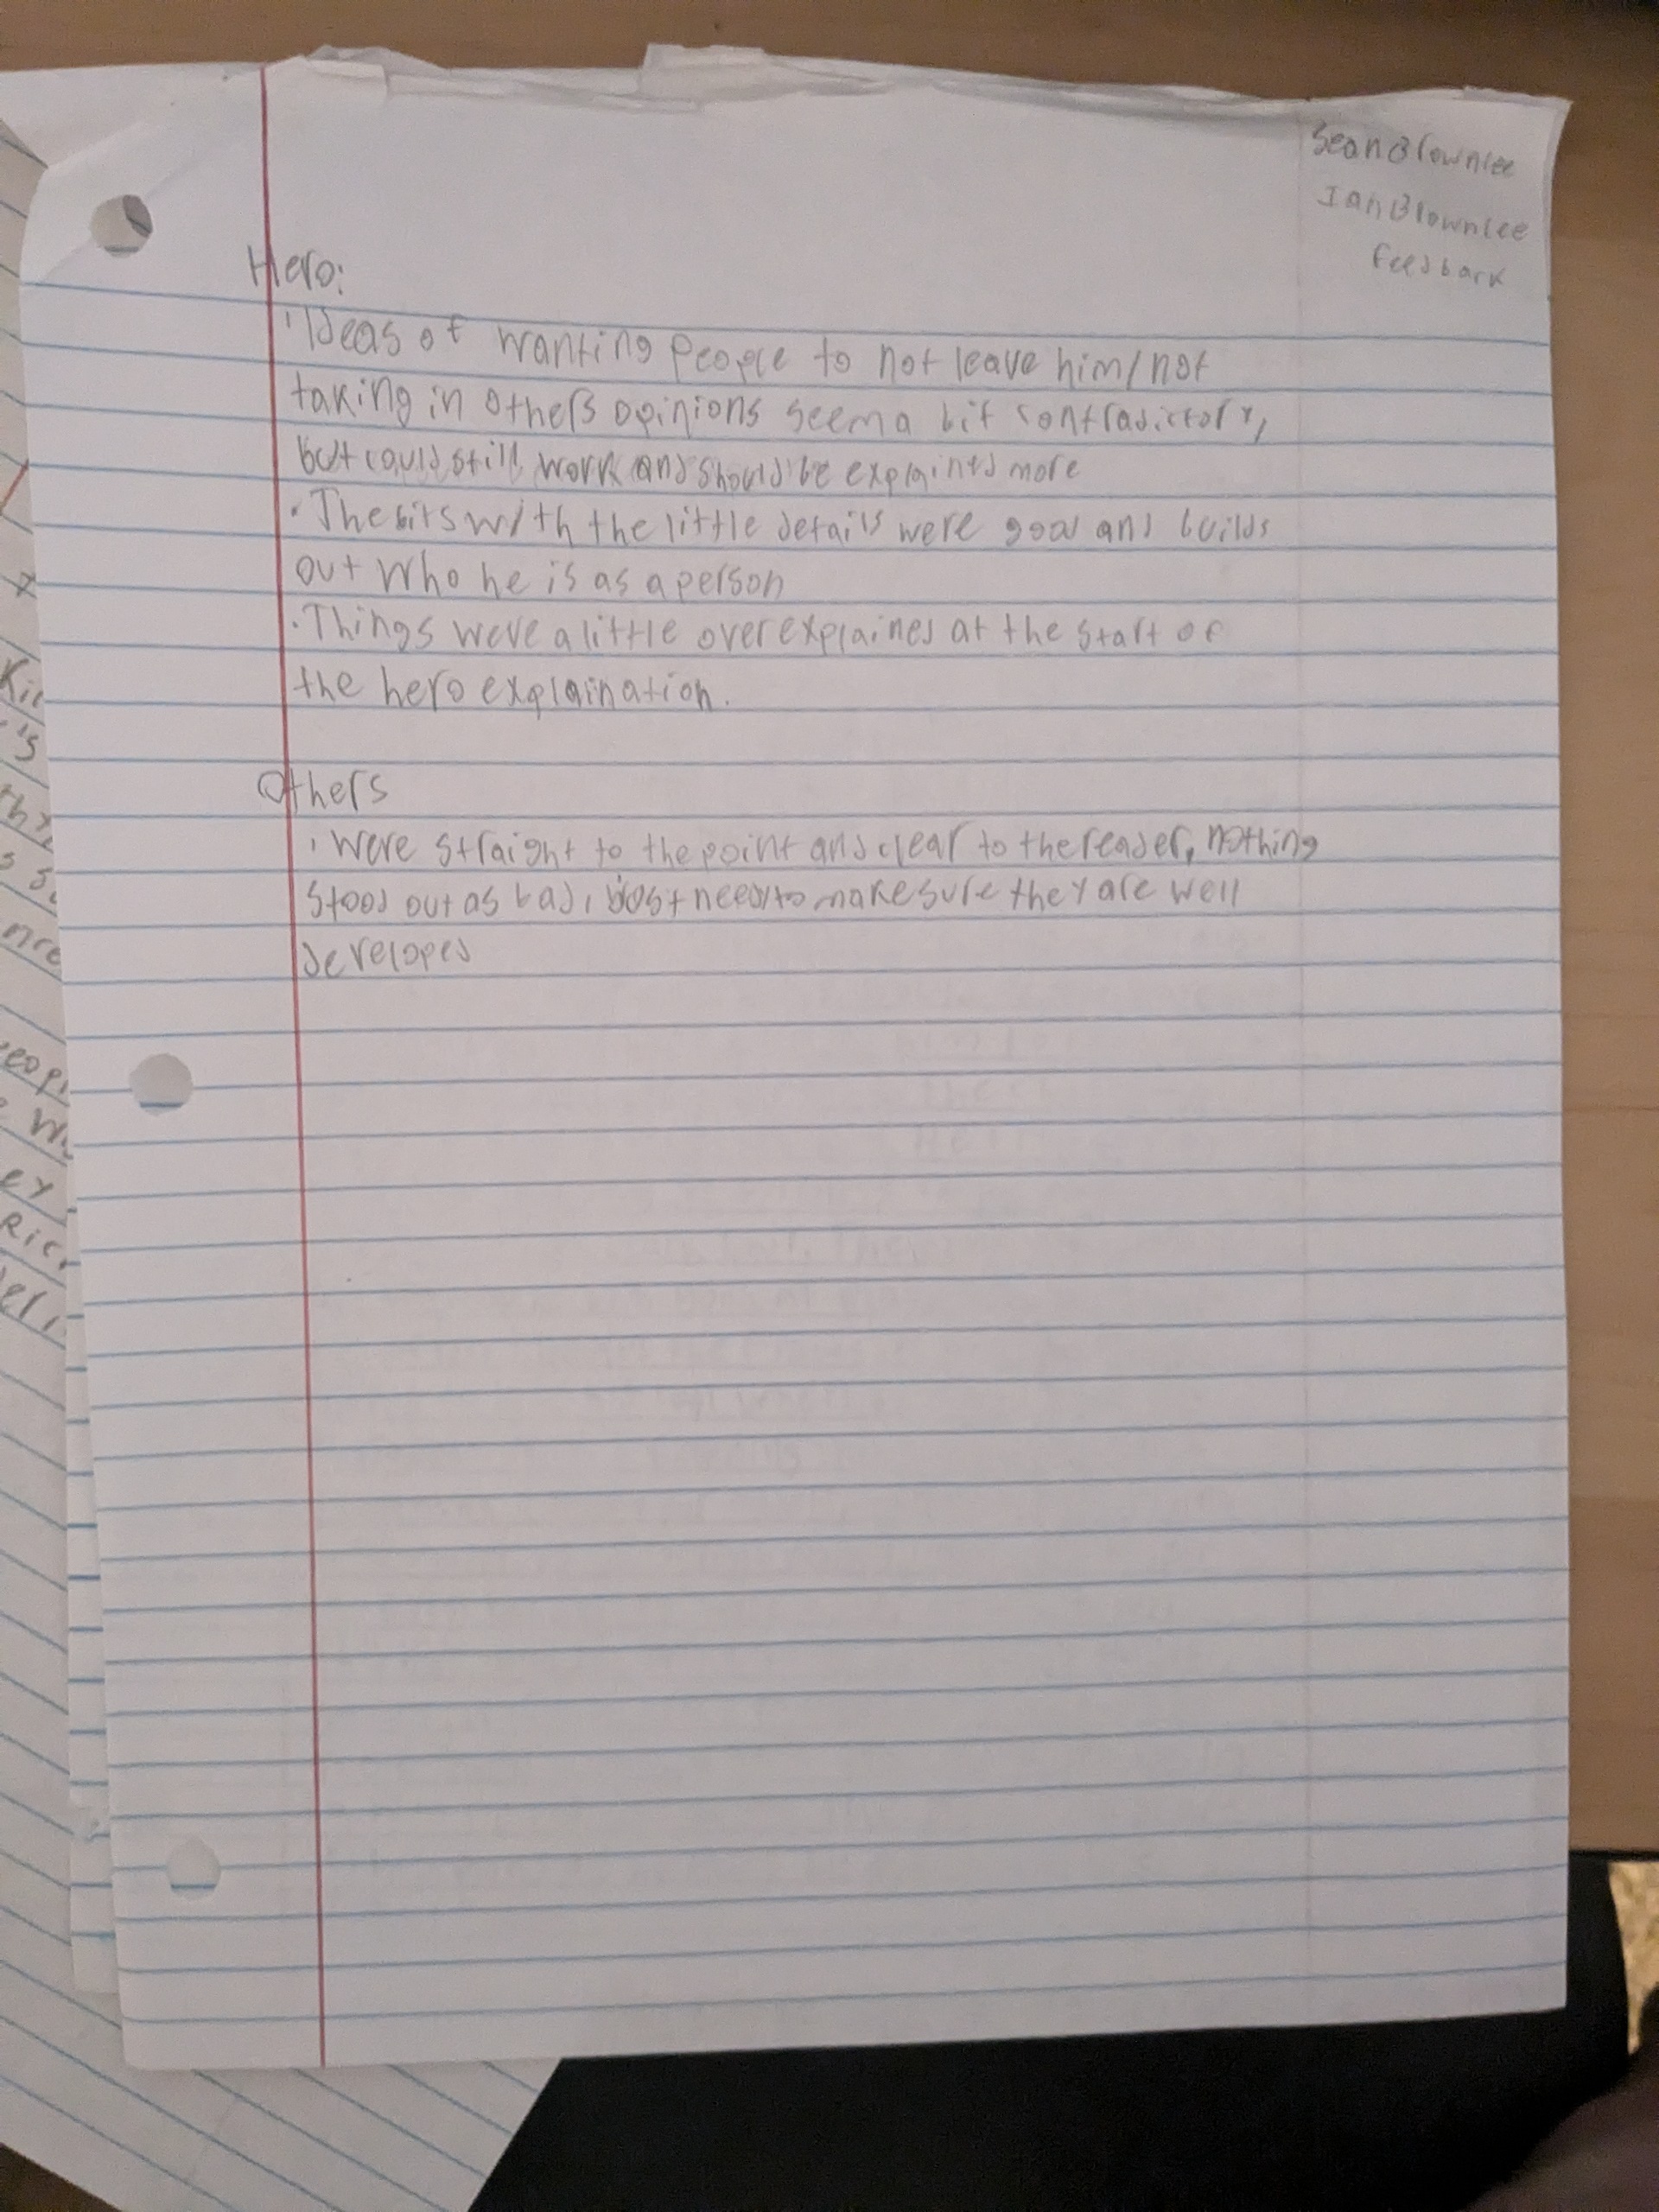 Sean Brownlee
Ian Brownlee
Feedback
Hero:
· Ideas of wanting people to not leave him/not
taking in others opinions seem a bit contradictory,
but could still work and should be explained more
· The bits with the little details were good and builds
out who he is as a person
· Things were a little over explained at the start of
the hero explaination.
Others
· Were straight to the point and clear to the reader, nothing
stood out as bad, just need to make sure they are well
developed